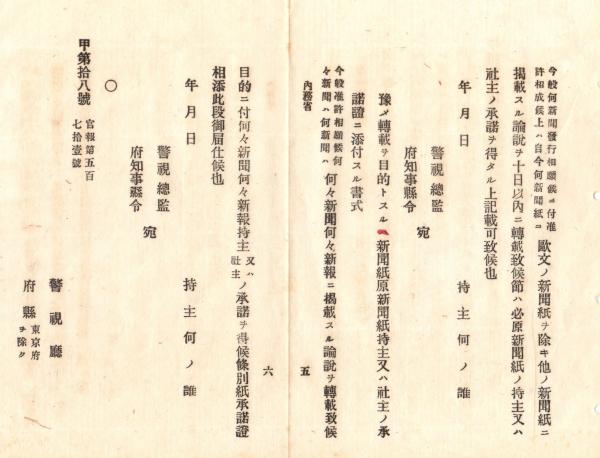 今般何新聞發行相願候ニ付准
許相成候上ハ自今何新聞紙ニ
歐文ノ新聞紙ヲ除キ他ノ新聞紙ニ
揭載スル論說ヲ十日以內ニ轉載致候節ハ必原新聞紙ノ持主又ハ
社主ノ承諾ヲ得タル上記載可致候也
年月日
持主何ノ誰
警視總監
府知事縣令
宛
豫メ轉載ヲ目的トスル新聞紙原新聞紙持主又ハ社主ノ承
諾證ニ添付スル書式
今般准許相願候何
々新聞ハ何新聞ハ
何々新聞何々新報ニ揭載スル論說ヲ轉載致候
內務省
五
目的ニ付何々新聞何々新報持主
又ハ
社主
ノ承諾ヲ得候條別紙承諾證
相添此段御屆仕候也
年月日
持主何ノ誰
警視總監
府知事縣令
宛
六
〇
甲第拾八號
官報第五百
七拾壹號
警視廳
府縣
東京府
ヲ除ク